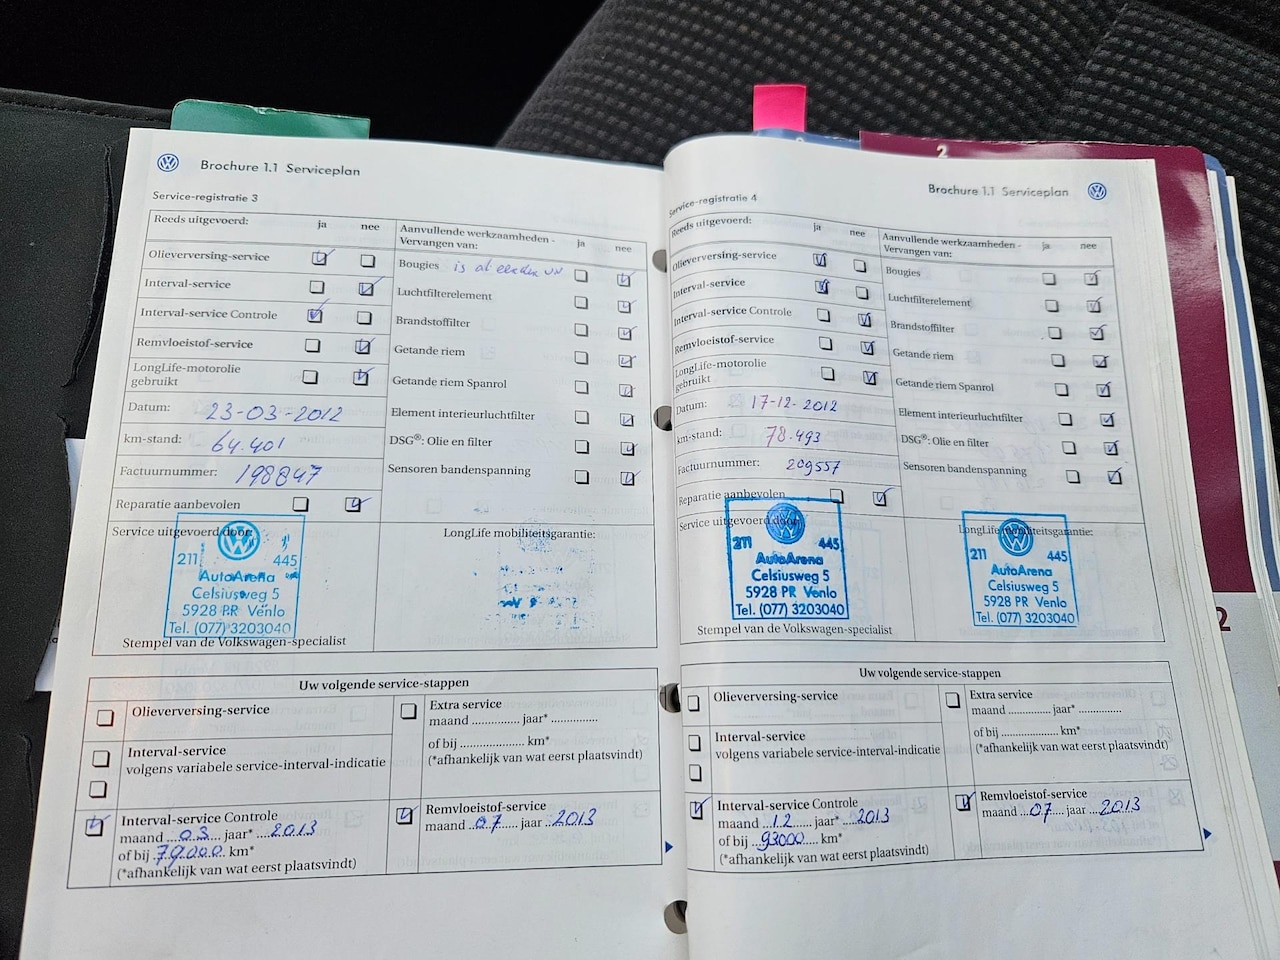 Brochure 1.1 Serviceplan
Service-registratie 3
Reeds uitgevoerd: ja nee
Olieverversing-service
Interval-service
Interval-service Controle
Remvloeistof-service
LongLife-motorolie
gebruikt
Datum: 23-03-2012
km-stand: 64.401
Factuurnummer: 198847
Reparatie aanbevolen
Aanvullende werkzaamheden - ja nee
Vervangen van:
Bougies is al eerder
Luchtfilterelement
Brandstoffilter
Getande riem
Getande riem Spanrol
Element interieurluchtfilter
DSG®: Olie en filter
Sensoren bandenspanning
Service uitgevoerd door:
211 445
AutoArena
Celsiusweg 5
5928 PR Venlo
Tel. (077) 3203040
Stempel van de Volkswagen-specialist
LongLife mobiliteitsgarantie:
Uw volgende service-stappen
Olieverversing-service
Interval-service
volgens variabele service-interval-indicatie
Interval-service Controle
maand 03 jaar* 2013
of bij 79.000 km*
(*afhankelijk van wat eerst plaatsvindt)
Extra service
maand .............. jaar* ..............
of bij .................... km*
(*afhankelijk van wat eerst plaatsvindt)
Remvloeistof-service
maand 07 jaar 2013
2
Brochure 1.1 Serviceplan
Service-registratie 4
Reeds uitgevoerd: ja nee
Olieverversing-service
Interval-service
Interval-service Controle
Remvloeistof-service
LongLife-motorolie
gebruikt
Datum: 17-12-2012
km-stand: 78.493
Factuurnummer: 209557
Reparatie aanbevolen
Aanvullende werkzaamheden - ja nee
Vervangen van:
Bougies
Luchtfilterelement
Brandstoffilter
Getande riem
Getande riem Spanrol
Element interieurluchtfilter
DSG®: Olie en filter
Sensoren bandenspanning
Service uitgevoerd door:
211 445
AutoArena
Celsiusweg 5
5928 PR Venlo
Tel. (077) 3203040
Stempel van de Volkswagen-specialist
LongLife mobiliteitsgarantie:
211 445
AutoArena
Celsiusweg 5
5928 PR Venlo
Tel. (077) 3203040
Uw volgende service-stappen
Olieverversing-service
Interval-service
volgens variabele service-interval-indicatie
Interval-service Controle
maand 12 jaar* 2013
of bij 93000 km*
(*afhankelijk van wat eerst plaatsvindt)
Extra service
maand .............. jaar* ..............
of bij .................... km*
(*afhankelijk van wat eerst plaatsvindt)
Remvloeistof-service
maand 07 jaar 2013
2